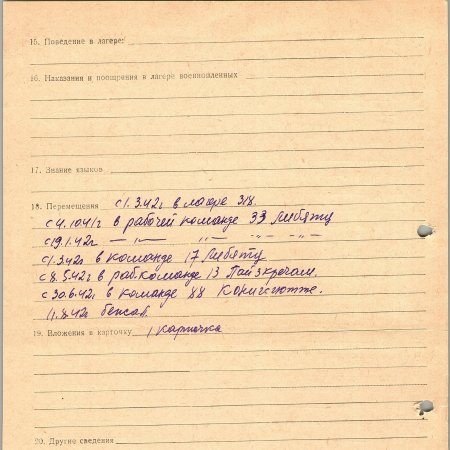 15. Поведение в лагере:
16. Наказания и поощрения в лагере военнопленных
17. Знание языков
18. Перемещения с 1.3.42г в лагере 318.
с 4.10.41г в рабочей команде 33 Либяту
с 19.1.42г — " — " — " — " —
с 1.3.42г в команде 17 Либяту
с 8.5.42г в раб команде 13 Пайскречам
с 30.6.42г в команде 88 Кенигсгютте.
11.8.42г бежал.
19. Вложения в карточку 1 карточка
20. Другие сведения